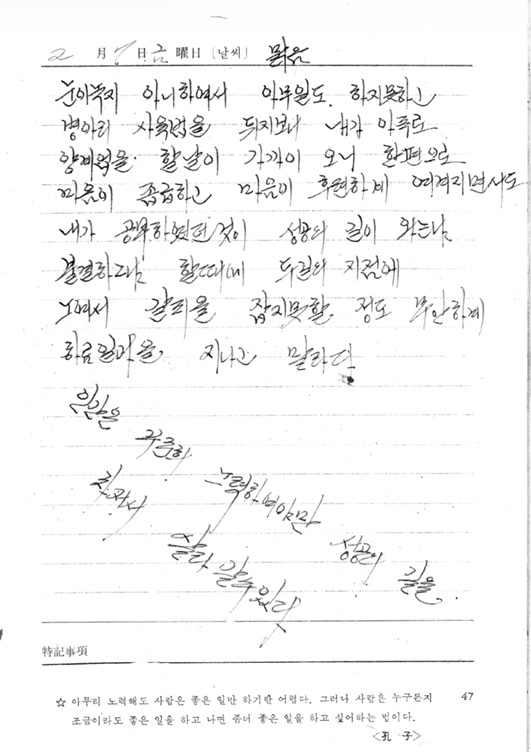 2 月 7 日 금 曜日 [날씨] 맑음
눈이녹지 아니하여서 아무일도. 하지못하고
병아리 사육법을 뒤지보니 내가 아폭로
양계업을 할날이 가까이 오니 한편으로
마음이 좁급하고 마음이 후련하게 여겨지면서도
내가 공부하였던것이 성공의 길이 와는냐
불결하그냐 할때에 두길의 지점에
서 갈피을 잡지못할 정도 무안하게
하료일과을 지나고 말라다
일감을
꾸준히
찾꺼서
노력하며야지만
잘라 갈수있다
성공의
길을.
特記事項
☆ 아무리 노력해도 사람은 좋은 일만 하기란 어렵다. 그러나 사람은 누구든지 47
조금이라도 좋은 일을 하고 나면 좀더 좋은 일을 하고 싶어하는 법이다.
<孔 子>